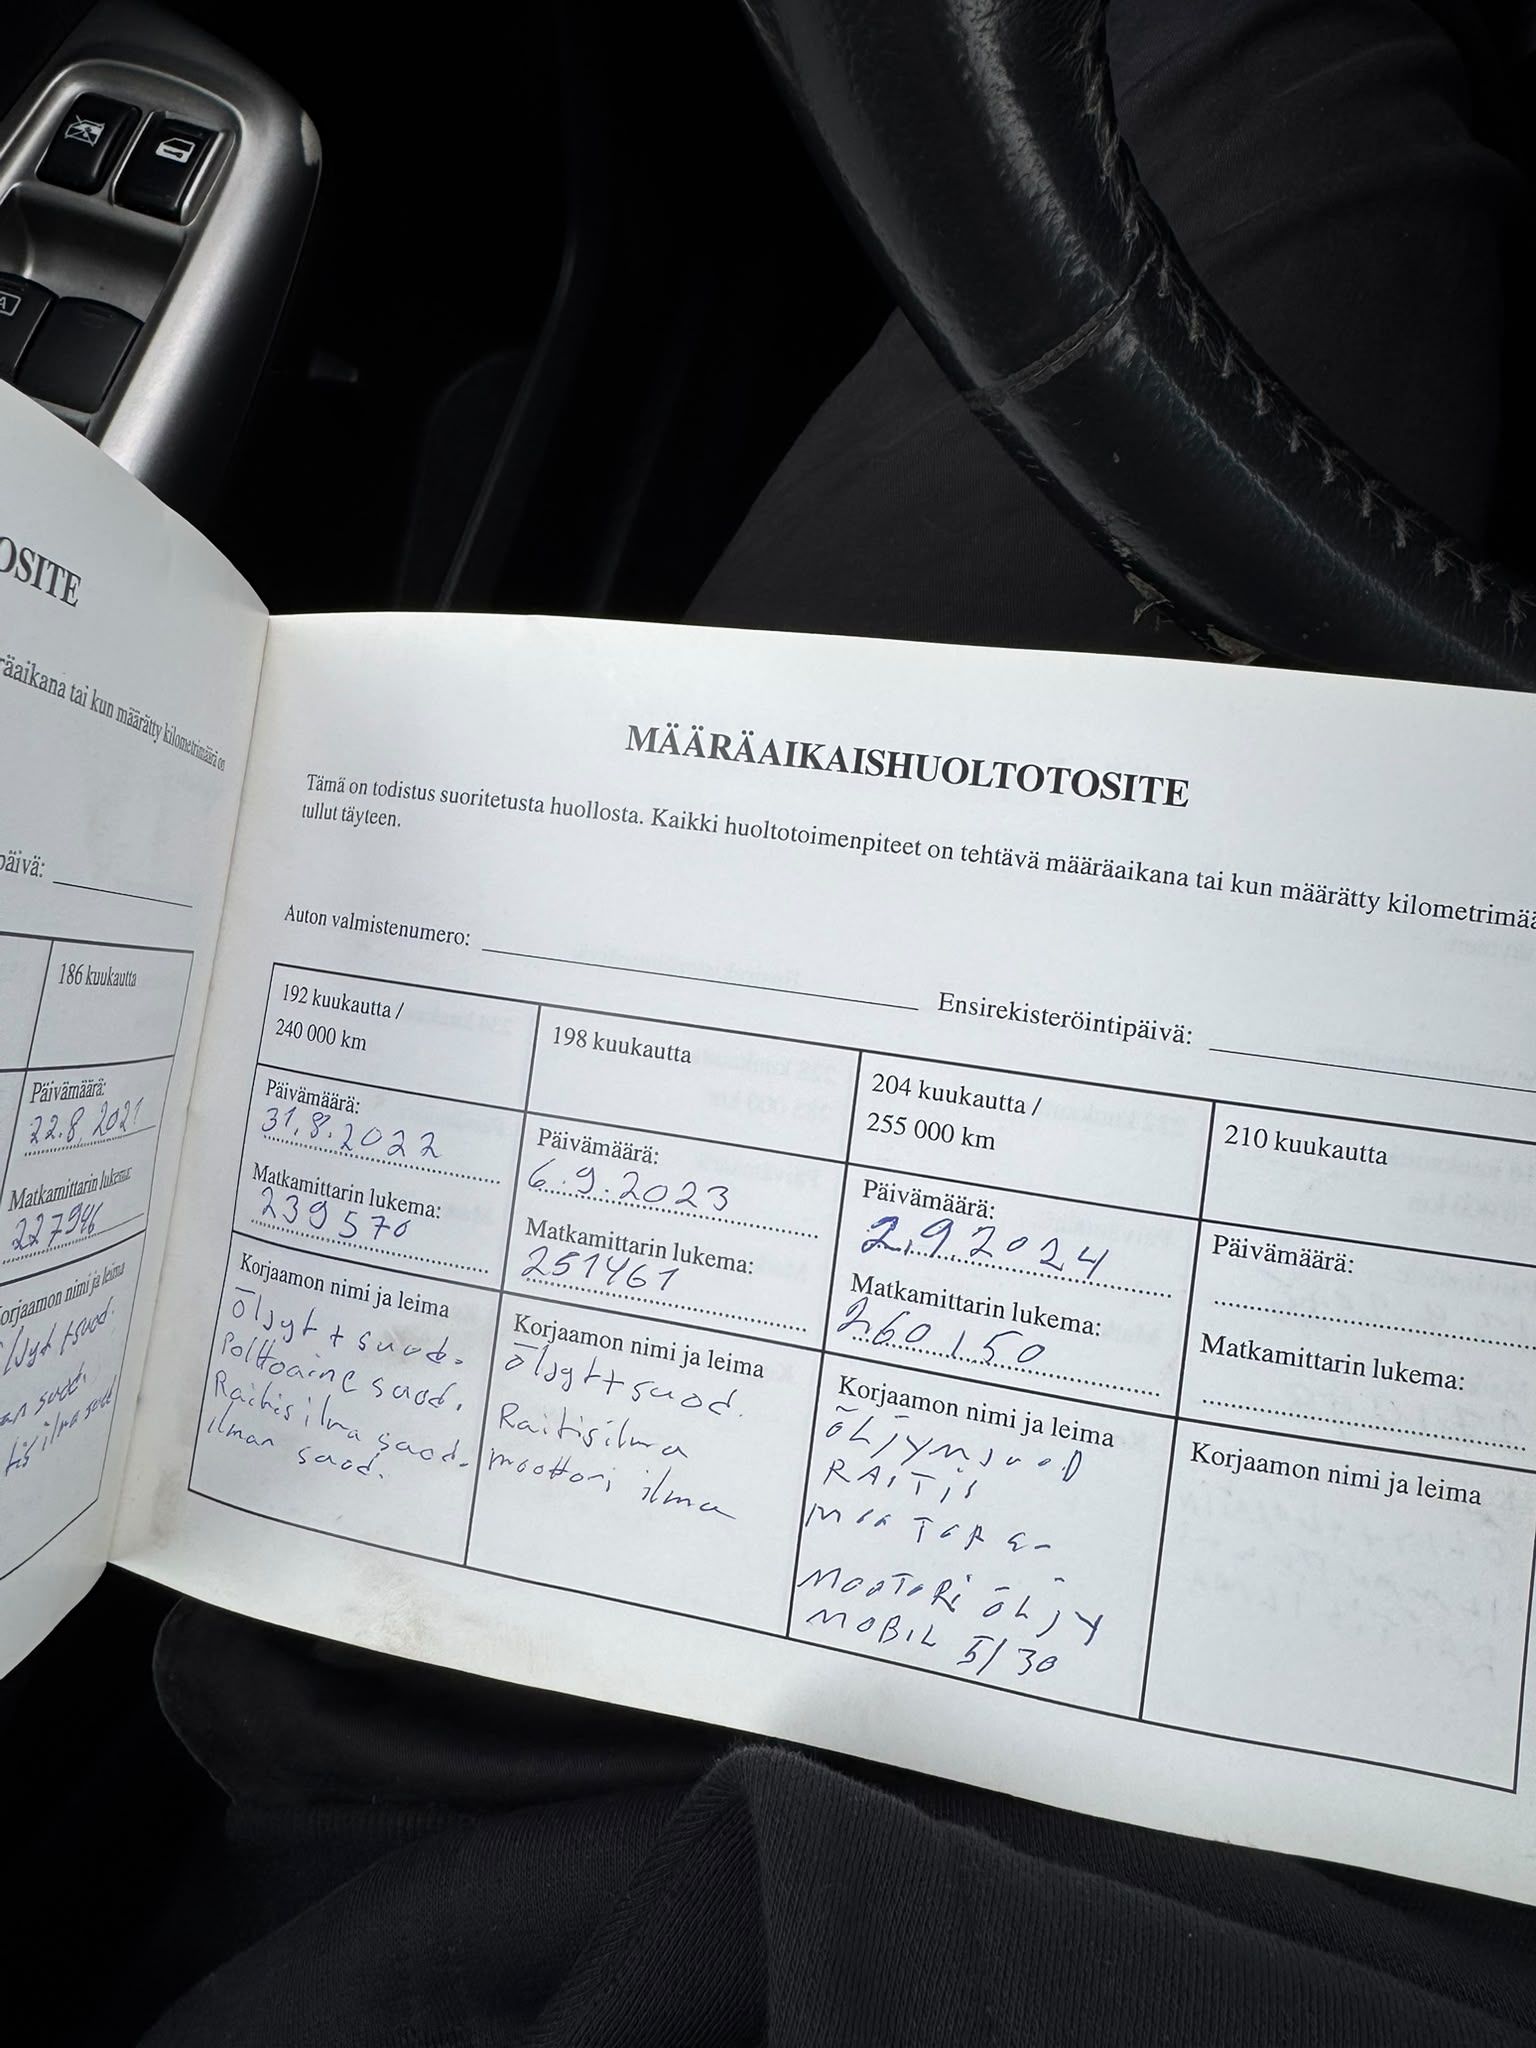 A
OSITE
räaikana tai kun määrätty kilometrimäärä on
päivä:
186 kuukautta
Päivämäärä:
22.8.2021
Matkamittarin lukema:
227946
orjaamon nimi ja leima
ljyt + suod.
an suod.
tis ilma suod
MÄÄRÄAIKAISHUOLTOTOSITE
Tämä on todistus suoritetusta huollosta. Kaikki huoltotoimenpiteet on tehtävä määräaikana tai kun määrätty kilometrimää
tullut täyteen.
Auton valmistenumero:
Ensirekisteröintipäivä:
192 kuukautta /
240 000 km
Päivämäärä:
31.8.2022
Matkamittarin lukema:
239570
Korjaamon nimi ja leima
Öljyt + suod.
Polttoaine suod.
Raitisilma suod.
ilman
suod.
198 kuukautta
Päivämäärä:
6.9.2023
Matkamittarin lukema:
251461
Korjaamon nimi ja leima
Öljyt + suod.
Raitisilma
moottori ilma
204 kuukautta /
255 000 km
Päivämäärä:
2.9.2024
Matkamittarin lukema:
260150
Korjaamon nimi ja leima
ÖLJYNSUOD
RAITIS
MOOTORI ÖLJY
MOBIL 5/30
210 kuukautta
Päivämäärä:
Matkamittarin lukema:
Korjaamon nimi ja leima